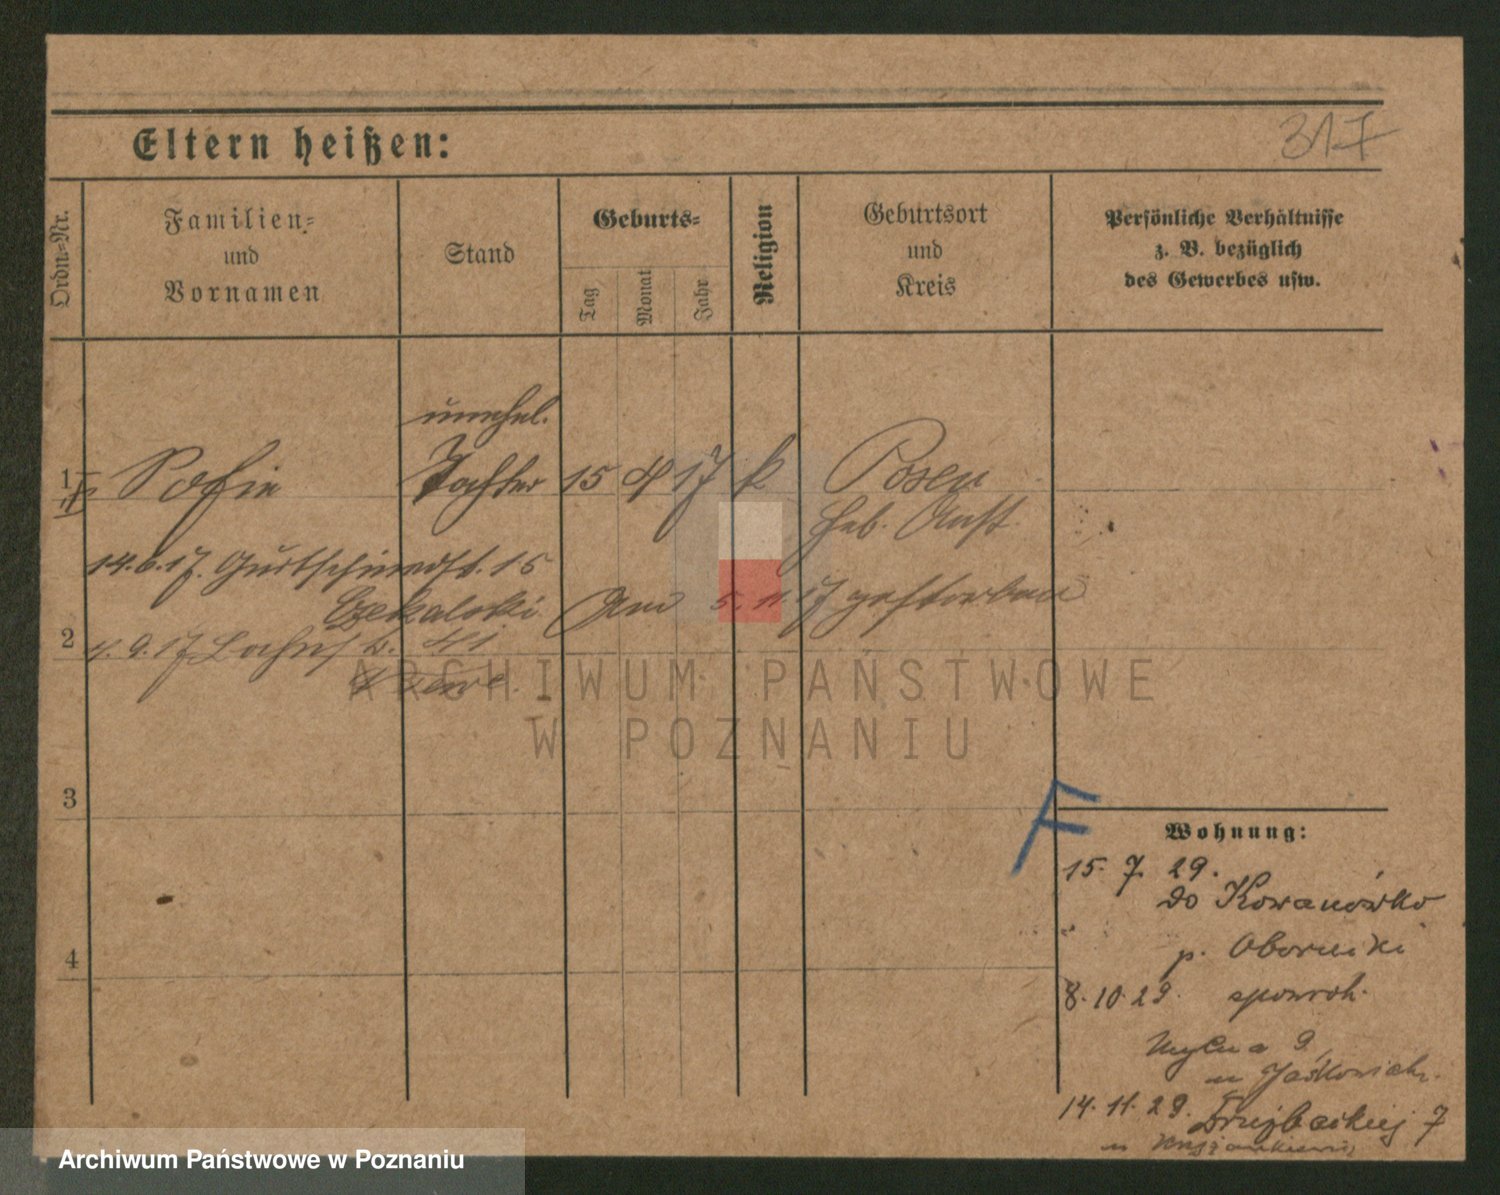 Eltern heißen:
317
Ordn.-Nr.
Familien-
und
Vornamen
Stand
Geburts-
Tag
Monat
Jahr
Religion
Geburtsort
und
Kreis
Persönliche Verhältnisse
z. B. bezüglich
des Gewerbes usw.
unehel.
1 Sofie Tochter 15 4 17 k Posen
Heb. Anst.
14.6.17. 15
Am 5. 11. 17 gestorben
2
4. 9. 17 41
3
4
F
Wohnung:
15. 7. 29.
do Kowanówko
p. Oborniki
8. 10. 29. spowrot.
Mylna 9
u
14. 11. 29. Drużbackiej 7
u
ARCHIWUM PAŃSTWOWE
W POZNANIU
Archiwum Państwowe w Poznaniu